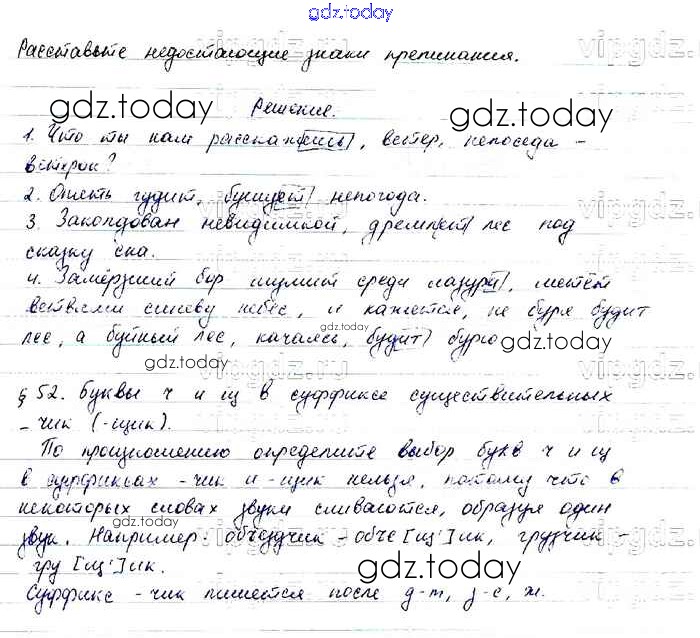 gdz.today
Расставьте недостающие знаки препинания.
gdz.today
gdz.today
Решение.
1. Что ты нам расскажешь, ветер, непоседа -
ветерок?
2. Опять гудит, бушует непогода.
3. Заколдован невидимкой, дремлет лес под
сказку сна.
4. Замёрзший бор шумит среди лазури, метёт
ветвями синеву небес, и кажется, не буря будит
лес, а буйный лес, качаясь, будит бурю
gdz.today
gdz.today
gdz.today
§ 52. Буквы ч и щ в суффиксе существительных
-чик (-щик).
По произношению определите выбор букв ч и щ
в суффиксах -чик и -щик нельзя, потому что в
некоторых словах звуки сливаются, образуя один
звук. Например: объездчик - объе[щ']ик, грузчик -
gdz.today
гру[щ']ик.
gdz.today
Суффикс -чик пишется после д-т, з-с, ж.
vipgdz.ru